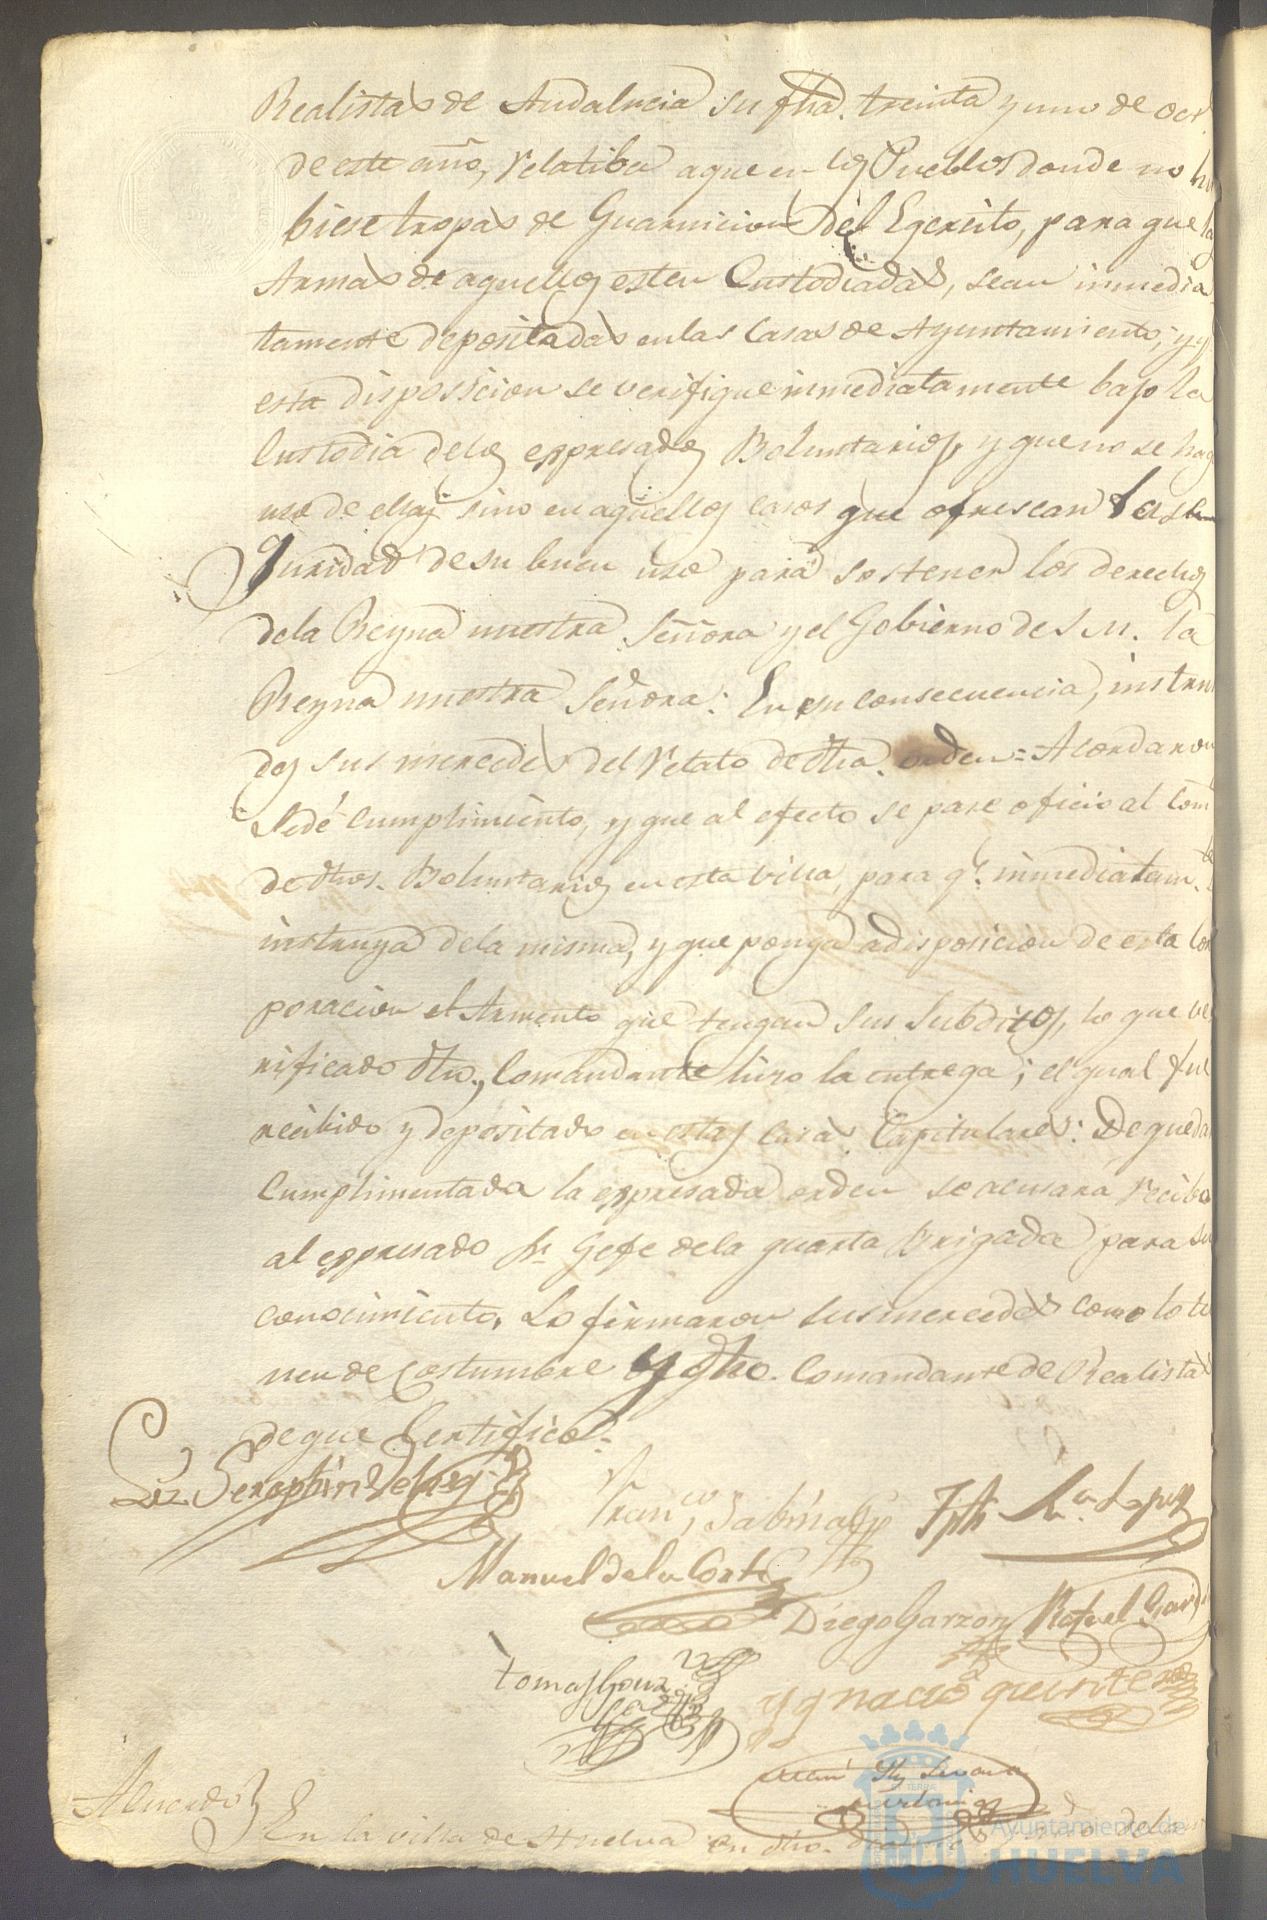 Realistas de Andalucia su fha. treinta y uno de oct.
de este año, relatiba a que en los Pueblos donde no hu
biese tropas de Guarnicion del Egercito, para que las
Armas de aquellos esten Custodiadas, sean inmedia
tamente depositadas en las Casas de Ayuntamiento; y q.
esta disposicion se verifique inmediatamente bajo la
Custodia delos expresados Boluntarios, y que no se haga
uso de ellas sino en aquellos casos que ofrescan la se
guridad de su buen uso para sostener los derechos
dela Reyna nuestra Señora y el Gobierno de S. M. la
Reyna nuestra Señora: En su consecuencia, instrui
dos sus mercedes del relato de dha. orden = Acordaron
sedé cumplimiento, y que al efecto se pase oficio al Com.te
de dhos. Boluntarios en esta villa, para q.e inmediatam.te
instruya dela misma, y que ponga a disposicion de esta Cor
poracion el Armento que tengan sus subditos, lo que ve
rificado dho., Comandante hizo la entrega; el qual fue
recibido y depositado en estas Casas Capitulares: De quedar
cumplimentada la expresada orden se acusará recibo
al expresado Sr. Gefe dela quarta Brigada para su
conocimiento. Lo firmaron sus mercedes como lo tie
nen de Costumbre y dho. Comandante de Realistas
de que Certifico =
Seraphin
Fran.co Sabina Jph. Lopez
Manuel dela Corte
Diego Garzon Rafael
Tomas Gonzalez
Ygnacio Quintero
Acuerdo En la villa de Huelva en dho. dia
Ayuntamiento de
HUELVA